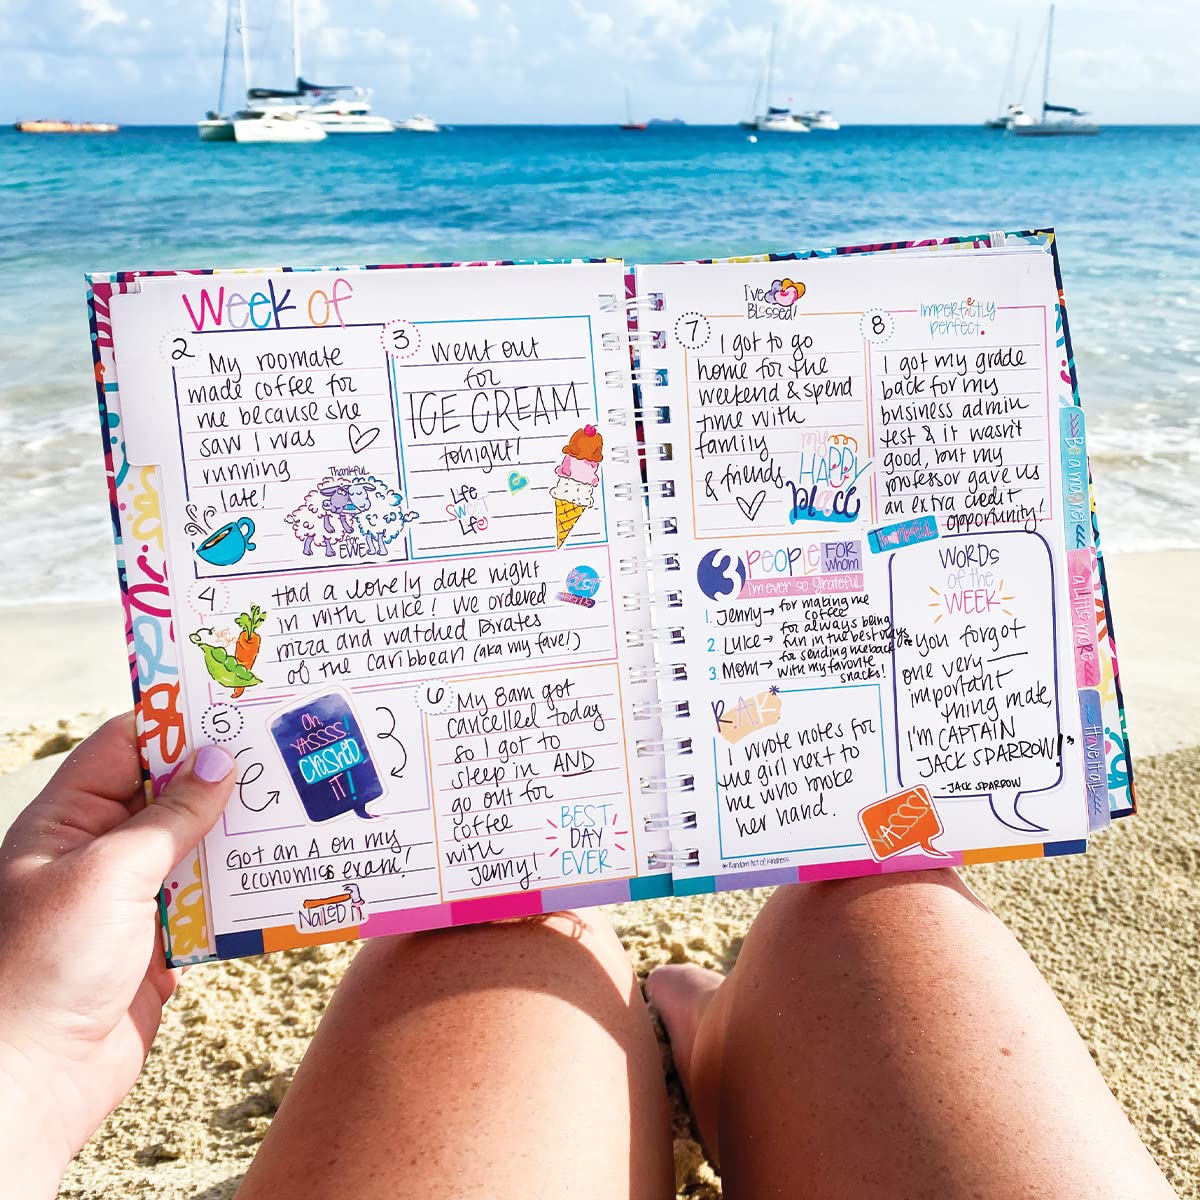 Week of
2
My roommate
made coffee for
me because she
saw I was
running
late!
Thankful
for EWE
3
Went out
for
ICE CREAM
tonight!
Life
Sweet
Life
4
Had a lovely date night
in with Luke! We ordered
pizza and watched Pirates
of the Caribbean (aka my fave!)
BEST
5
Oh,
YASSSS!
CRUSHED
IT!
Got an A on my
economics exam!
NAILED IT.
6
My 8am got
cancelled today
so I got to
sleep in AND
go out for
coffee
with
Jenny!
BEST
DAY
EVER
I've
BLessed!
7
I got to go
home for the
weekend & spend
time with
family
& friends
my
HAPPY
place
8
imperfectly
perfect.
I got my grade
back for my
business admin
test & it wasn't
good, but my
professor gave us
an extra credit
opportunity!
Thankful
3 PEOPLE FOR
whom
I'm ever so grateful
1. Jenny → for making me
coffee
2. Luke → for always being
fun in the best ways
3. Mom → for sending me back
with my favorite
snacks!
R.A.K*
I wrote notes for
the girl next to
me who broke
her hand.
*Random Act of Kindness
YASSS!
WORDS
of the
WEEK
"You forgot
one very
important
thing mate,
I'M CAPTAIN
JACK SPARROW!"
- JACK SPARROW
a little more